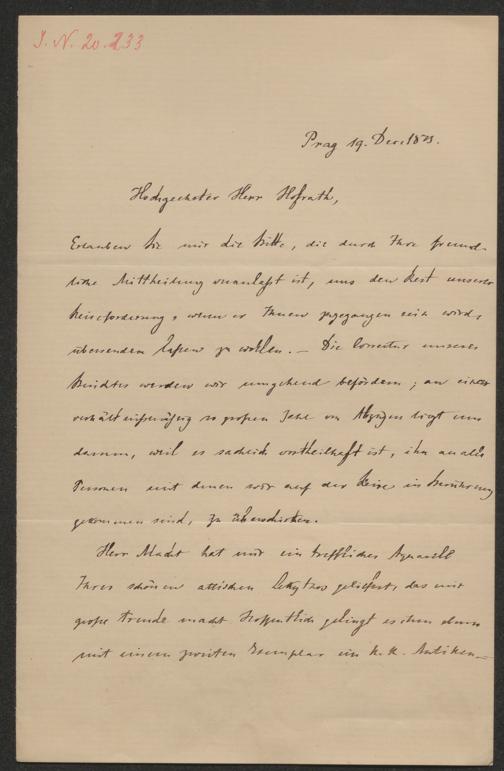 I. N. 20.233
Prag 19. Dec. 18
Hochgeehrter Herr Hofrath,
Erlauben Sie mir die Bitte, die durch Ihre freund-
liche Mittheilung veranlaßt ist, uns den Rest unserer
Reiseforderung, wenn er Ihnen zugegangen sein wird,
übersenden laßen zu wollen. — Die Correctur unseres
Berichtes werden wir umgehend befördern; an einer
verhältnißmäßig so großen Zahl von Abzügen liegt uns
darum, weil es sachlich vortheilhaft ist, ihn an alle
Personen mit denen wir auf der Reise in Berührung
gekommen sind, zu überschicken.
Herr Macht hat mir ein treffliches Aquarell
Ihres schönen attischen Lekythos geliefert, das mir
große Freude macht. Hoffentlich gelingt es ihm
mit einem zweiten Exemplar im k. k. Antiken-